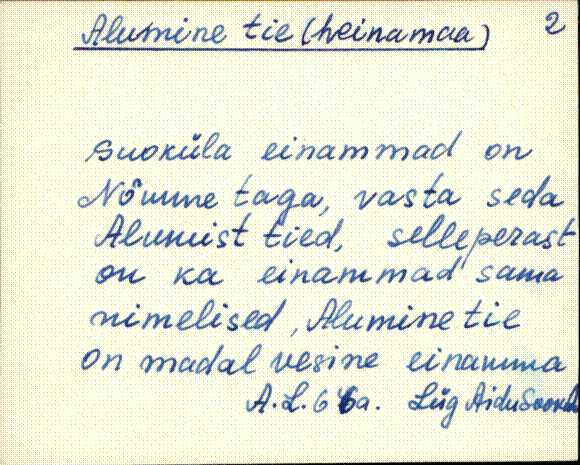 Alumine tie (heinamaa) 2
Suoküla einammad on
Nõmme taga, vasta seda
Alumist tied, selleperast
on ka einammad sama
nimelised, Alumine tie
on madal vesine einamma
A.L. 66a. Lüg Aidu